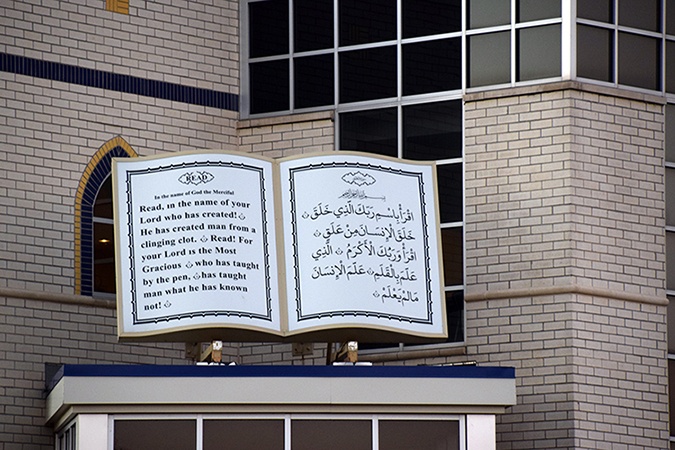 READ
In the name of God the Merciful
Read, in the name of your
Lord who has created!
He has created man from a
clinging clot. Read! For
your Lord is the Most
Gracious who has taught
by the pen, has taught
man what he has known
not!
اقْرَأْ بِاسْمِ رَبِّكَ الَّذِي خَلَقَ
خَلَقَ الْإِنسَانَ مِنْ عَلَقٍ
اقْرَأْ وَرَبُّكَ الْأَكْرَمُ الَّذِي
عَلَّمَ بِالْقَلَمِ عَلَّمَ الْإِنسَانَ
مَا لَمْ يَعْلَمْ